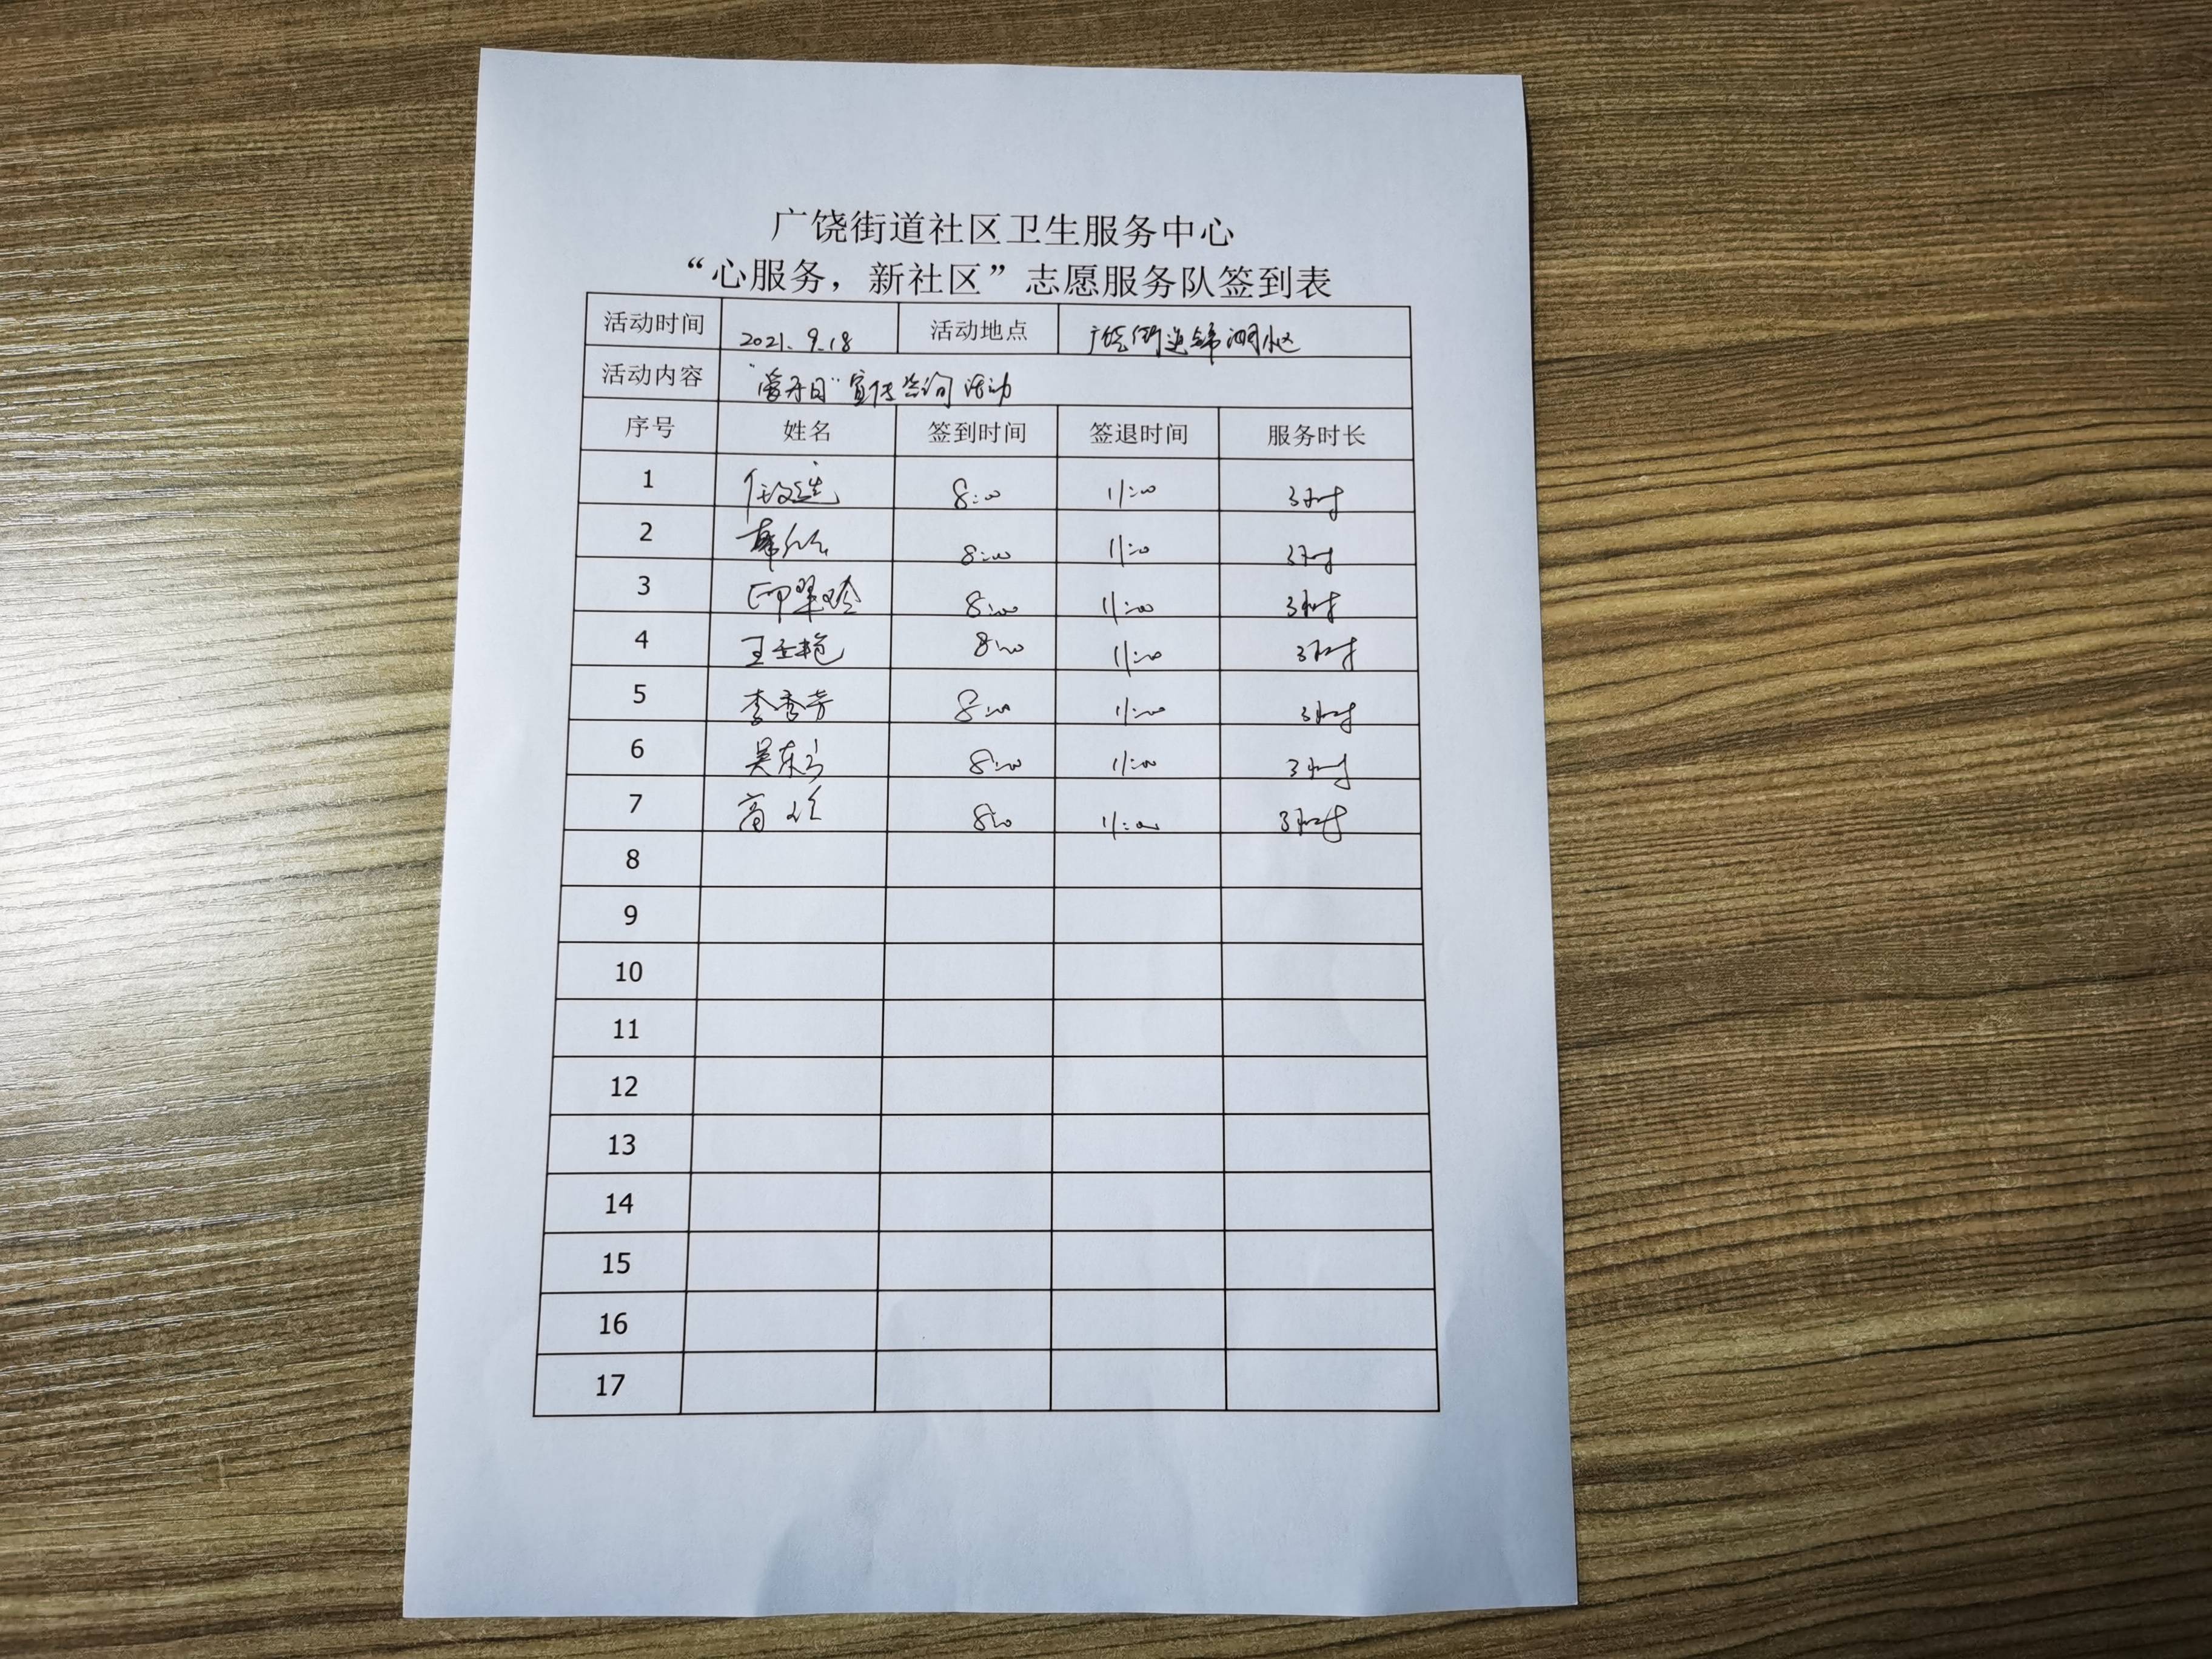 广饶街道社区卫生服务中心
“心服务，新社区”志愿服务队签到表
活动时间 2021.9.18 活动地点 广饶街道锦湖小区
活动内容 “爱牙日”宣传咨询活动
序号 姓名 签到时间 签退时间 服务时长
1 8:00 11:00 3小时
2 8:00 11:00 3小时
3 8:00 11:00 3小时
4 王 艳 8:00 11:00 3小时
5 李秀芳 8:00 11:00 3小时
6 吴东 8:00 11:00 3小时
7 8:00 11:00 3小时
8
9
10
11
12
13
14
15
16
17